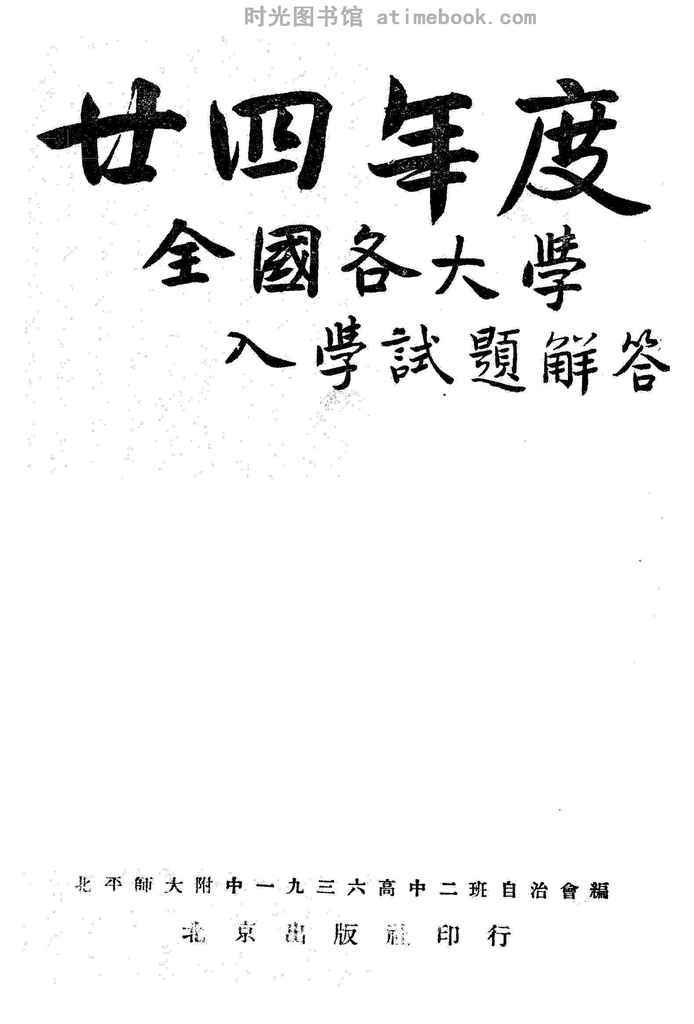 时光图书馆 atimebook.com
廿四年度
全國各大學
入學試題解答
北平師大附中一九三六高中二班自治會編
北京出版社印行